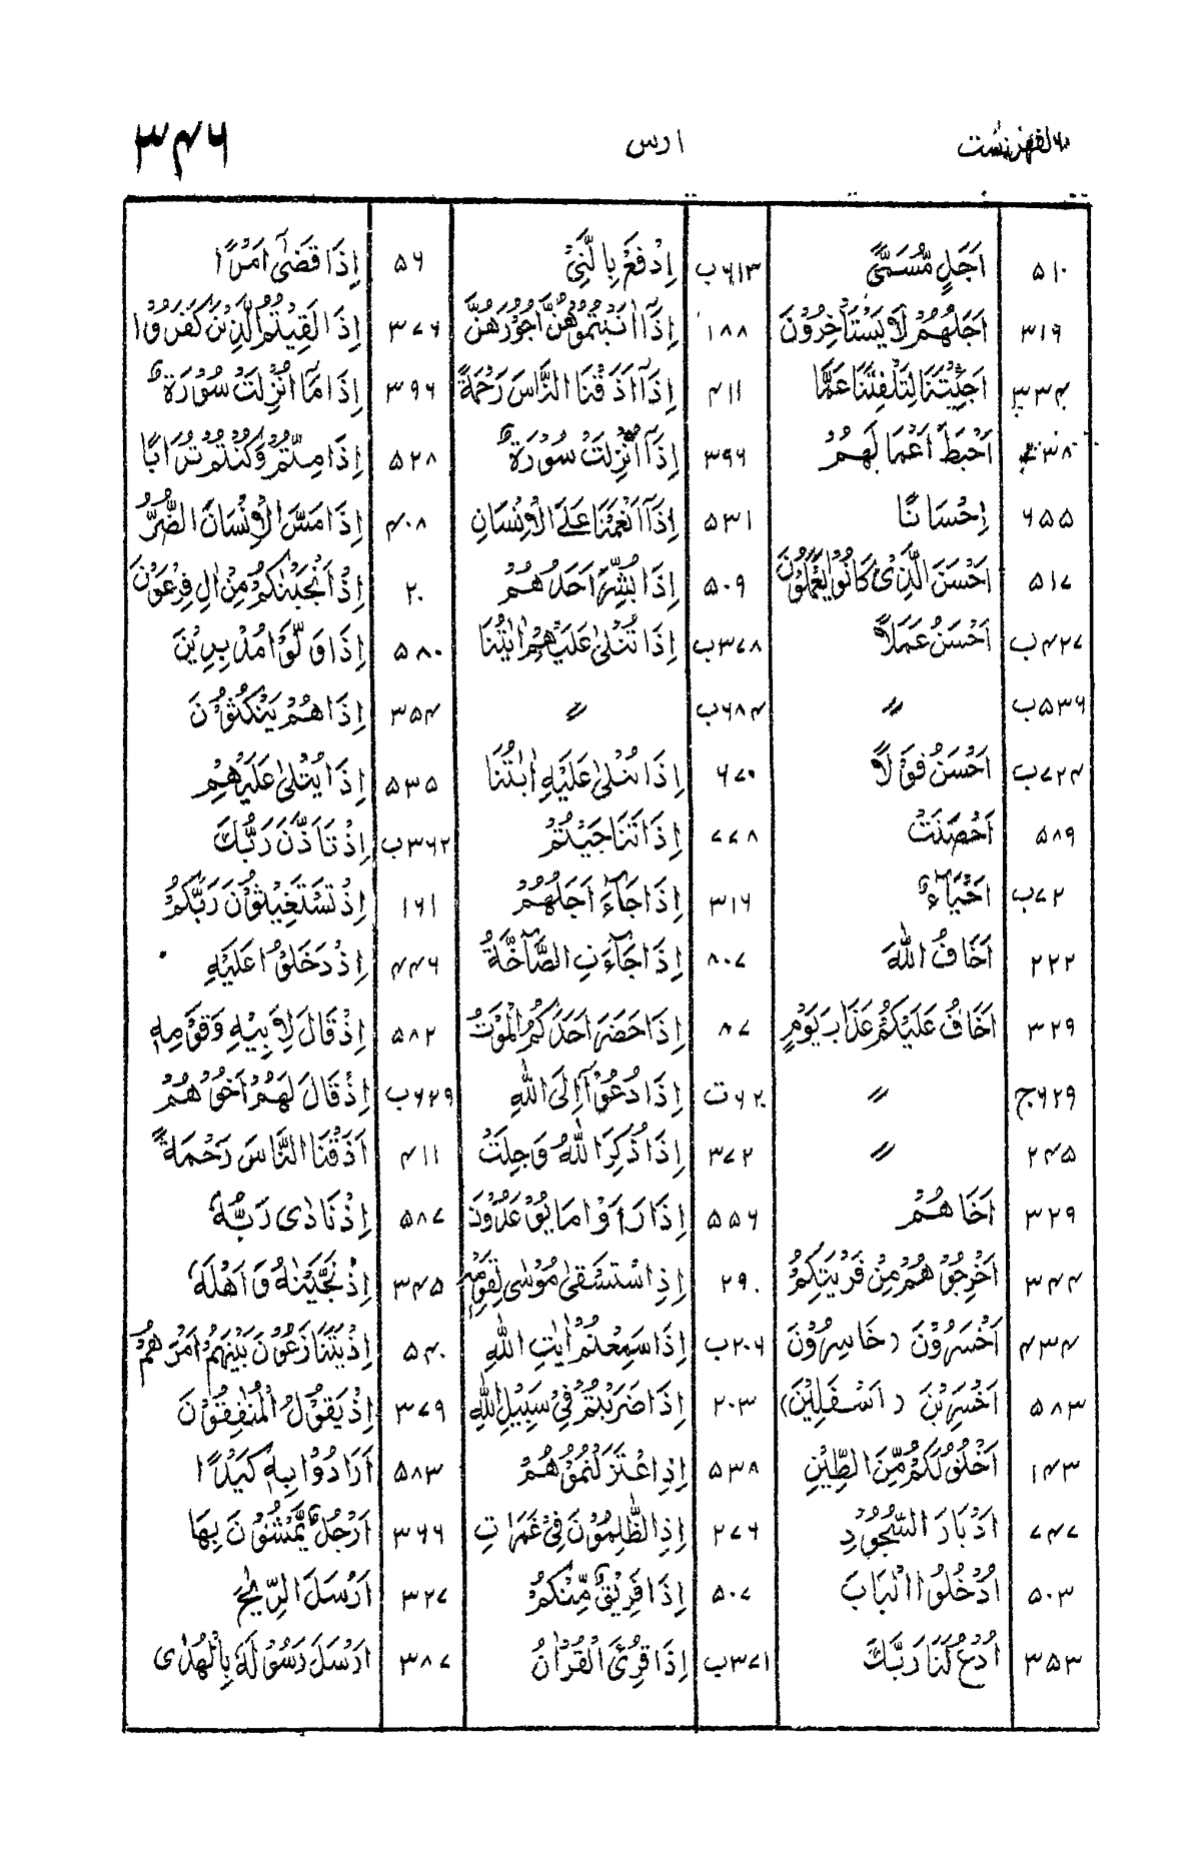 الفهرست ا رس ۳۴۶
۵۱۰ اَجَلٍ مُّسَمًّى ۶۱۳ب اِدْفَعْ بِالَّتِیْ ۵۶ اِذَا قَضٰۤی اَمْرًا
۳۱۹ اَجَلُهُمْ لَا یَسْتَاْخِرُوْنَ ۱۸۸ اِذَاۤ اٰتَیْتُمُوْهُنَّ اُجُوْرَهُنَّ ۳۷۶ اِذَا لَقِیْتُمُ الَّذِیْنَ كَفَرُوْا
۳۳۴ اَجِئْتَنَا لِتَلْفِتَنَا عَمَّا ۴۱۱ اِذَاۤ اَذَقْنَا النَّاسَ رَحْمَةً ۳۹۶ اِذَا مَاۤ اُنْزِلَتْ سُوْرَةٌ
اَحْبَطَ اَعْمَالَهُمْ ۳۹۶ اِذَاۤ اُنْزِلَتْ سُوْرَةٌ ۵۲۸ اِذَا مِتْتُمْ وَكُنْتُمْ تُرَابًا
۶۵۵ اِحْسَانًا ۵۳۱ اِذَاۤ اَنْعَمْنَا عَلَى الْاِنْسَانِ ۴۰۸ اِذَا مَسَّ الْاِنْسَانَ الضُّرُّ
۵۱۷ اَحْسَنَ الَّذِیْ كَانُوْا یَعْمَلُوْنَ ۵۰۹ اِذَا بُشِّرَ اَحَدُهُمْ ۲۰ اِذْ اَنْجَیْنٰكُمْ مِنْ اٰلِ فِرْعَوْنَ
۴۲۷ب اَحْسَنُ عَمَلًا ۳۷۸ب اِذَا تُتْلٰى عَلَیْهِمْ اٰیٰتُنَا ۵۸۰ اِذَا وَلَّوْا مُدْبِرِیْنَ
۵۳۶ب 〃 ۶۸۴ب 〃 ۳۵۴ اِذَا هُمْ یَنْكُثُوْنَ
۷۲۴ب اَحْسَنُ قَوْلًا ۶۷۰ اِذَا تُتْلٰى عَلَیْهِ اٰیٰتُنَا ۵۳۵ اِذَا یُتْلٰى عَلَیْهِمْ
۵۸۹ اَحْصَنَتْ ۷۷۸ اِذَا تَنَاجَیْتُمْ ۳۶۲ب اِذْ تَاَذَّنَ رَبُّكَ
۷۲ب اَحْیَآءٌ ۳۱۶ اِذَا جَآءَ اَجَلُهُمْ ۱۶۱ اِذْ تَسْتَغِیْثُوْنَ رَبَّكُمْ
۲۲۲ اَخَافُ اللّٰهَ ۸۰۷ اِذَا جَآءَتِ الصَّآخَّةُ ۴۴۶ اِذْ دَخَلُوْا عَلَیْهِ
۳۲۹ اَخَافُ عَلَیْكُمْ عَذَابَ یَوْمٍ ۸۷ اِذَا حَضَرَ اَحَدَكُمُ الْمَوْتُ ۵۸۲ اِذْ قَالَ لِاَبِیْهِ وَقَوْمِهٖ
۶۲۹ج 〃 ۶۲۰ت اِذَا دُعُوْۤا اِلَى اللّٰهِ ۶۲۹ب اِذْ قَالَ لَهُمْ اَخُوْهُمْ
۲۴۵ 〃 ۳۷۲ اِذَا ذُكِرَ اللّٰهُ وَجِلَتْ ۴۱۱ اَذَقْنَا النَّاسَ رَحْمَةً
۳۲۹ اَخَاهُمْ ۵۵۶ اِذَا رَاَوْا مَا یُوْعَدُوْنَ ۵۸۷ اِذْ نَادٰى رَبَّهٗ
۳۴۴ اَخْرِجُوْهُمْ مِنْ قَرْیَتِكُمْ ۲۹۰ اِذِ اسْتَسْقٰى مُوْسٰى لِقَوْمِهٖ ۳۴۵ اِذْ نَجَّیْنٰهُ وَاَهْلَهٗ
۴۳۴ اَخْسَرُوْنَ (خَاسِرُوْنَ ۲۰۶ب اِذَا سَمِعْتُمْ اٰیٰتِ اللّٰهِ ۵۴۰ اِذْ یَتَنَازَعُوْنَ بَیْنَهُمْ اَمْرَهُمْ
۵۸۳ اَخْسَرِیْنَ (اَسْفَلِیْنَ) ۲۰۳ اِذَا ضَرَبْتُمْ فِیْ سَبِیْلِ اللّٰهِ ۳۷۹ اِذْ یَقُوْلُ الْمُنٰفِقُوْنَ
۱۴۳ اَخْلُقُ لَكُمْ مِّنَ الطِّیْنِ ۵۳۸ اِذِ اعْتَزَلْتُمُوْهُمْ ۵۸۳ اَرَادُوْا بِهٖ كَیْدًا
۷۴۷ اَدْبَارَ السُّجُوْدِ ۲۷۶ اِذِ الظّٰلِمُوْنَ فِیْ غَمَرَاتِ ۳۶۶ اَرْجُلٌ یَّمْشُوْنَ بِهَا
۵۰۳ اُدْخُلُوا الْبَابَ ۵۰۷ اِذَا فَرِیْقٌ مِّنْكُمْ ۳۲۷ اَرْسَلَ الرِّیٰحَ
۳۵۳ اُدْعُ لَنَا رَبَّكَ ۳۷۱ب اِذَا قُرِئَ الْقُرْاٰنُ ۳۸۷ اَرْسَلَ رَسُوْلَهٗ بِالْهُدٰى